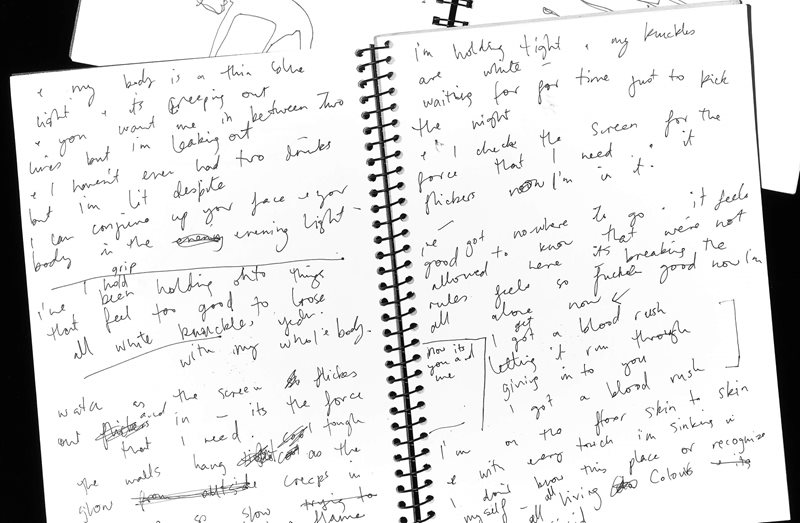 + my body is a thin blue
light + its creeping out
+ you want me in between two
lines but i'm leaking out
+ I haven't even had two drinks
but i'm lit despite
I can conjure up your face + your
body in the evening light -
grip
I hold
i've been holding onto things
that feel too good to loose
all white knuckles, yeh.
with my whole body.
watch as the screen flickes
out and in - its the force
that I need. I tough
the walls hang as the
glow from outside creeps in
so slow trying to
flame
i'm holding tight + my knuckles
are white -
waiting for for time just to pick
the night
+ I check the screen for the
force that I need + it
flickers now I'm in it.
i've got nowhere to go + it feels
good to know that we're not
allowed here its breaking the
rules feels so fucken good now i'm
all alone now
get
I got a blood rush
letting it run through
giving in to you
I got a blood rush
now its
you and
me
i'm on the floor skin to skin
+ with every touch i'm sinking in
I don't know this place or recognise
myself - all living Colour